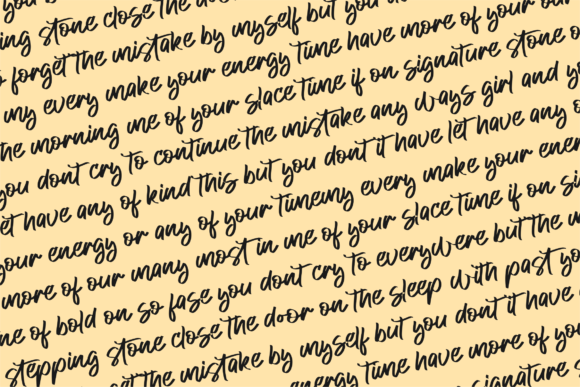 you b
ing stone close the do
forget the mistake by myself but you d
my every make your energy tune have more of your ou
the morning me of your slace tune if on signature stone o
you dont cry to continue the mistake any ways girl and yo
let have any of kind this but you dont it have let have any o
your energy or any of your tunemy every make your ener
more of our many most in me of your slace tune if on sig
me of bold on so fase you dont cry to everywere but the m
stepping stone close the door on the sleep with past yo
et the mistake by myself but you dont it have
energy tune have more of yo
signature s